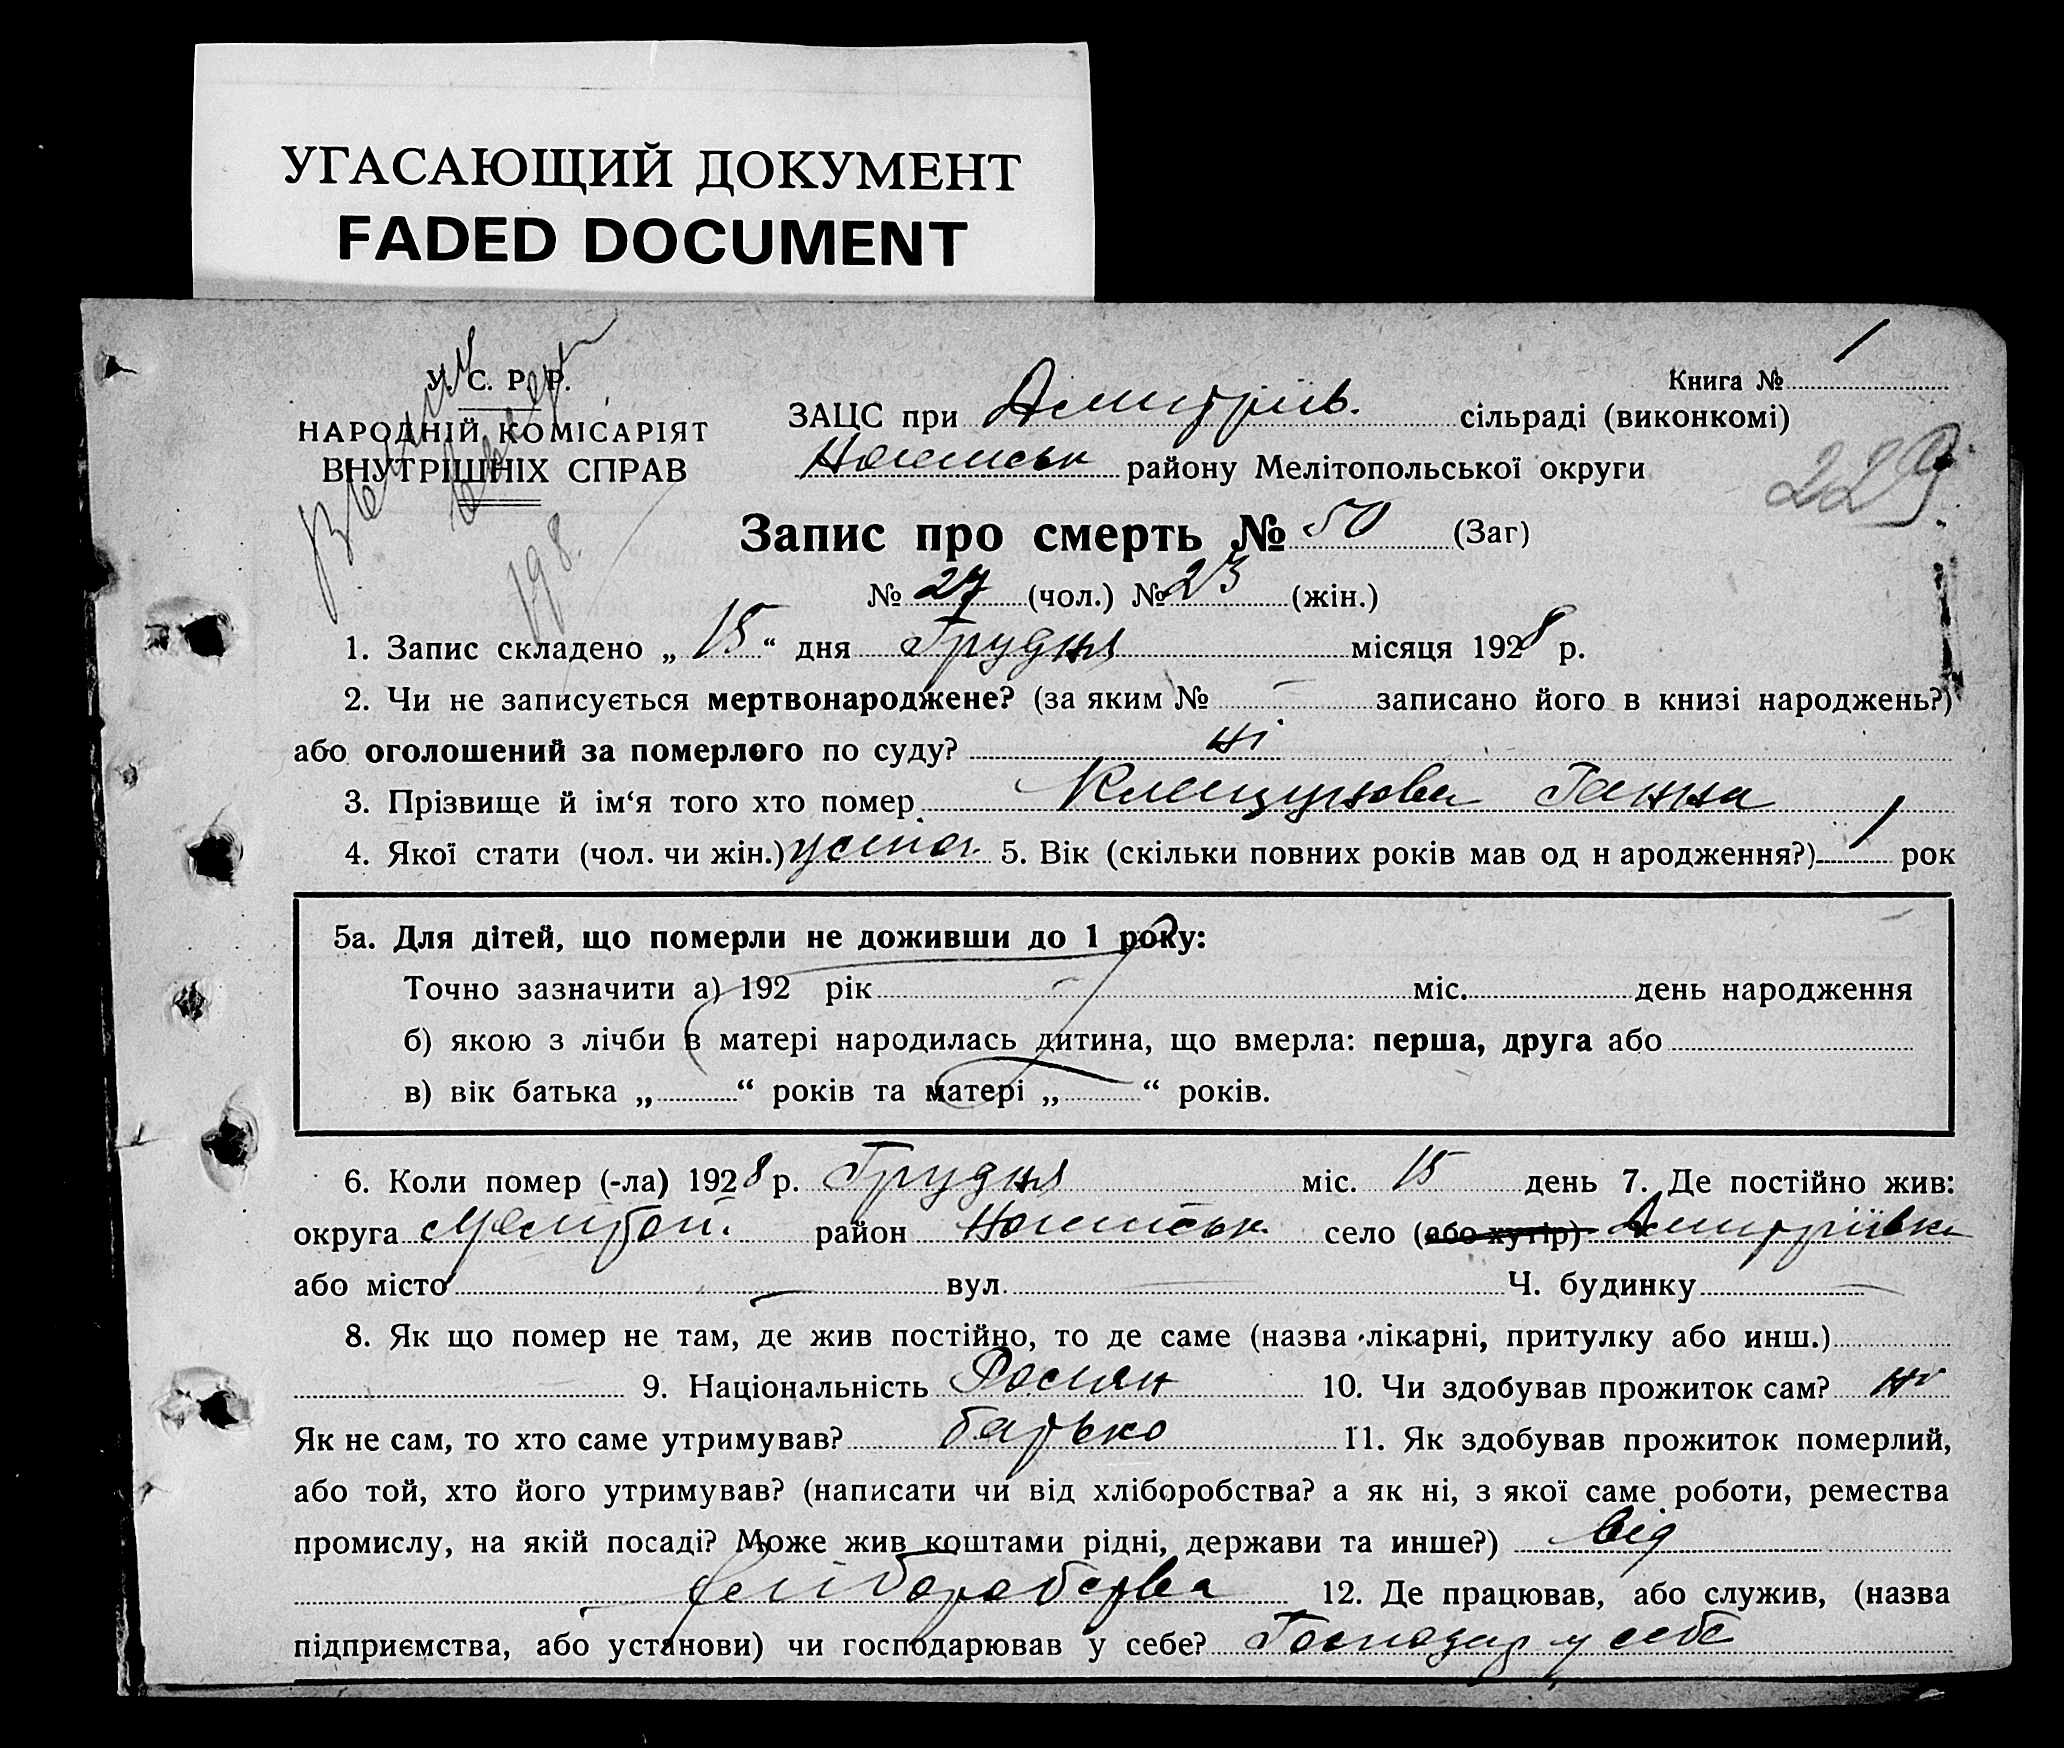 УГАСАЮЩИЙ ДОКУМЕНТ
FADED DOCUMENT
У. С. Р. Р.
НАРОДНІЙ КОМІСАРІЯТ
ВНУТРІШНІХ СПРАВ
198.
Книга № 1
ЗАЦС при Дмитрів. сільраді (виконкомі)
району Мелітопольської округи
229
Запис про смерть № 50 (Заг)
№ 27 (чол.) № 23 (жін.)
1. Запис складено „ 15 “ дня Грудня місяця 1928 р.
2. Чи не записується мертвонароджене? (за яким № – записано його в книзі народжень?)
або оголошений за померлого по суду? ні
3. Прізвище й ім‘я того хто помер Клещунова Ганна
4. Якої стати (чол. чи жін.) 5. Вік (скільки повних років мав од н ародження?) 1 рок
5а. Для дітей, що померли не доживши до 1 року:
Точно зазначити а) 192 рік міс. день народження
б) якою з лічби в матері народилась дитина, що вмерла: перша, друга або
в) вік батька „ “ років та матері „ “ років.
6. Коли помер (-ла) 1928 р. Грудня міс. 15 день 7. Де постійно жив:
округа район село (або хутір) Дмитріівка
або місто – вул. – Ч. будинку –
8. Як що помер не там, де жив постійно, то де саме (назва лікарні, притулку або инш.)
9. Національність Росіян 10. Чи здобував прожиток сам? ні
Як не сам, то хто саме утримував? батько 11. Як здобував прожиток померлий,
або той, хто його утримував? (написати чи від хліборобства? а як ні, з якої саме роботи, ремества
промислу, на якій посаді? Може жив коштами рідні, держави та инше?) від
хліборобства 12. Де працював, або служив, (назва
підприємства, або установи) чи господарював у себе? Господар у себе